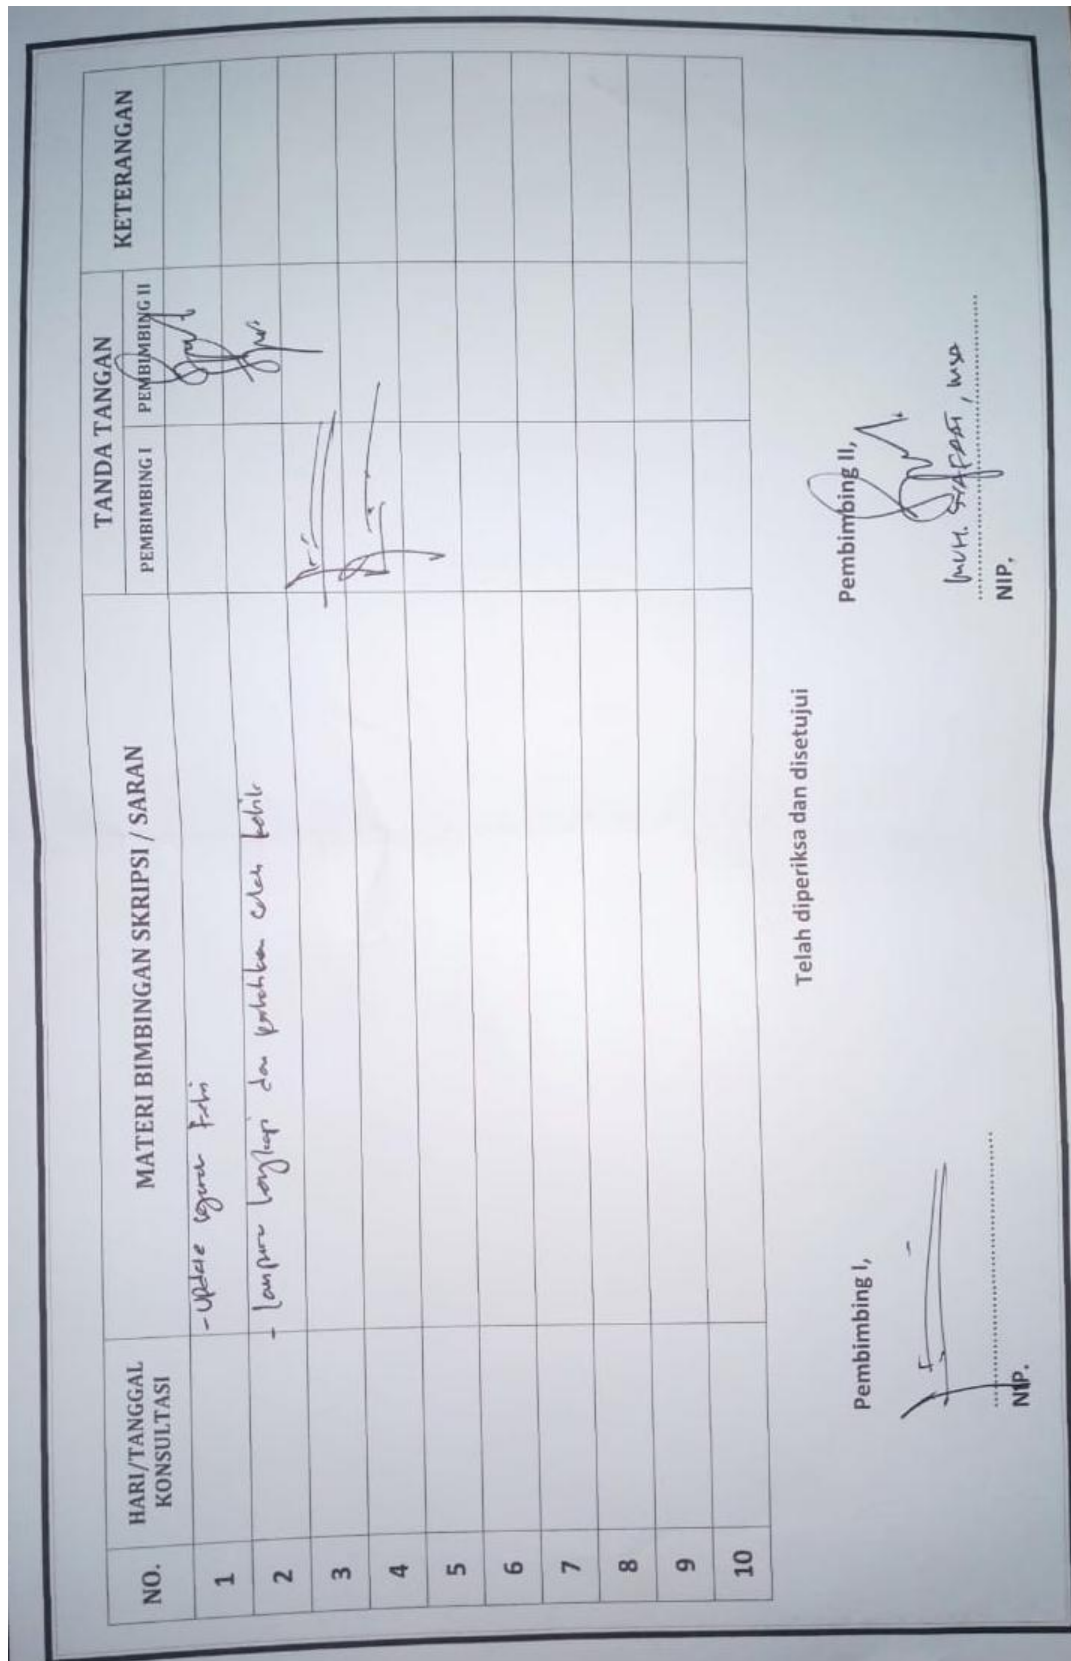 NO.
HARI/TANGGAL
KONSULTASI
MATERI BIMBINGAN SKRIPSI / SARAN
TANDA TANGAN
PEMBIMBING I
PEMBIMBING II
KETERANGAN
1
- Update
2
- dan
3
4
5
6
7
8
9
10
Telah diperiksa dan disetujui
Pembimbing I,
NIP.
Pembimbing II,
MUH.
NIP.